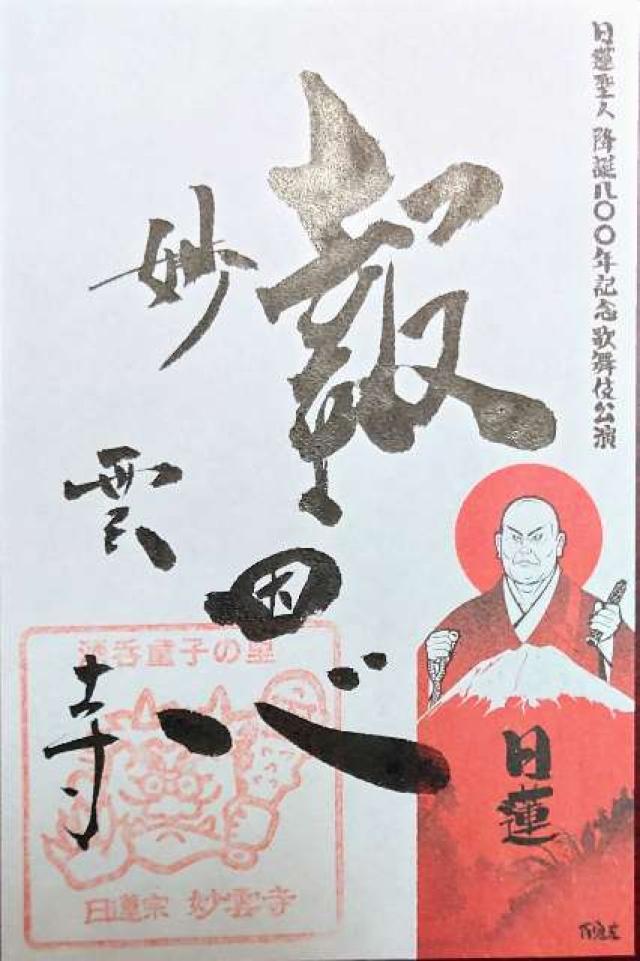 日蓮聖人 降誕八〇〇年記念 歌舞伎公演
報恩
妙雲寺
日蓮
酒呑童子の里
日蓮宗 妙雲寺